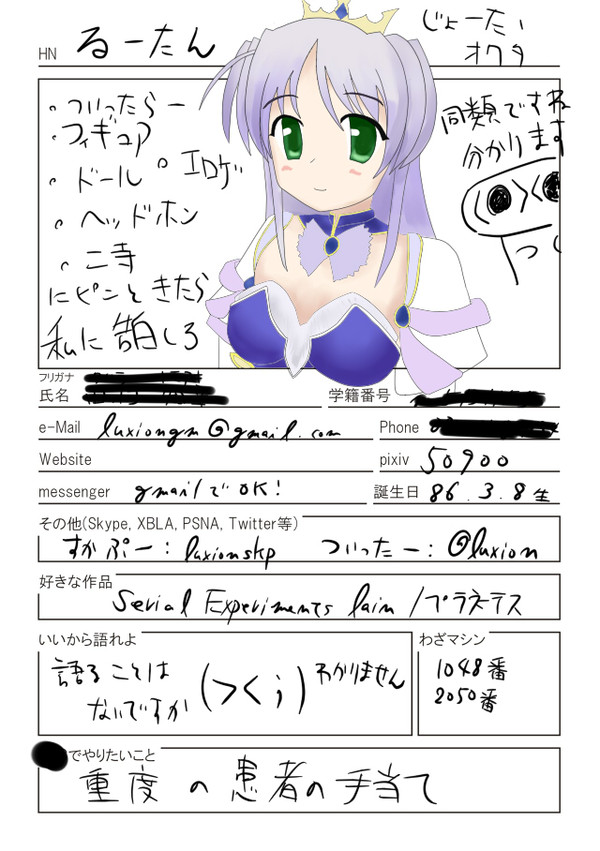 HN るーたん
じょーたい
オワタ
・ついったらー
・フィギュア
・ドール ・エロゲ
・ヘッドホン
・二寺
にピンときたら
私に告白しろ
同類ですね
分かります
フリガナ
氏名
学籍番号
e-Mail luxiongm@gmail.com
Phone
Website
pixiv 50900
messenger gmailでOK!
誕生日 86.3.8生
その他(Skype, XBLA, PSNA, Twitter等)
すかぷー:luxionskp ついったー:@luxion
好きな作品
Serial Experiments lain / プラネテス
いいから語れよ
語ることは
ないですか
(>く;)わかりません
わざマシン
1048番
2050番
でやりたいこと
重度の患者の手当て